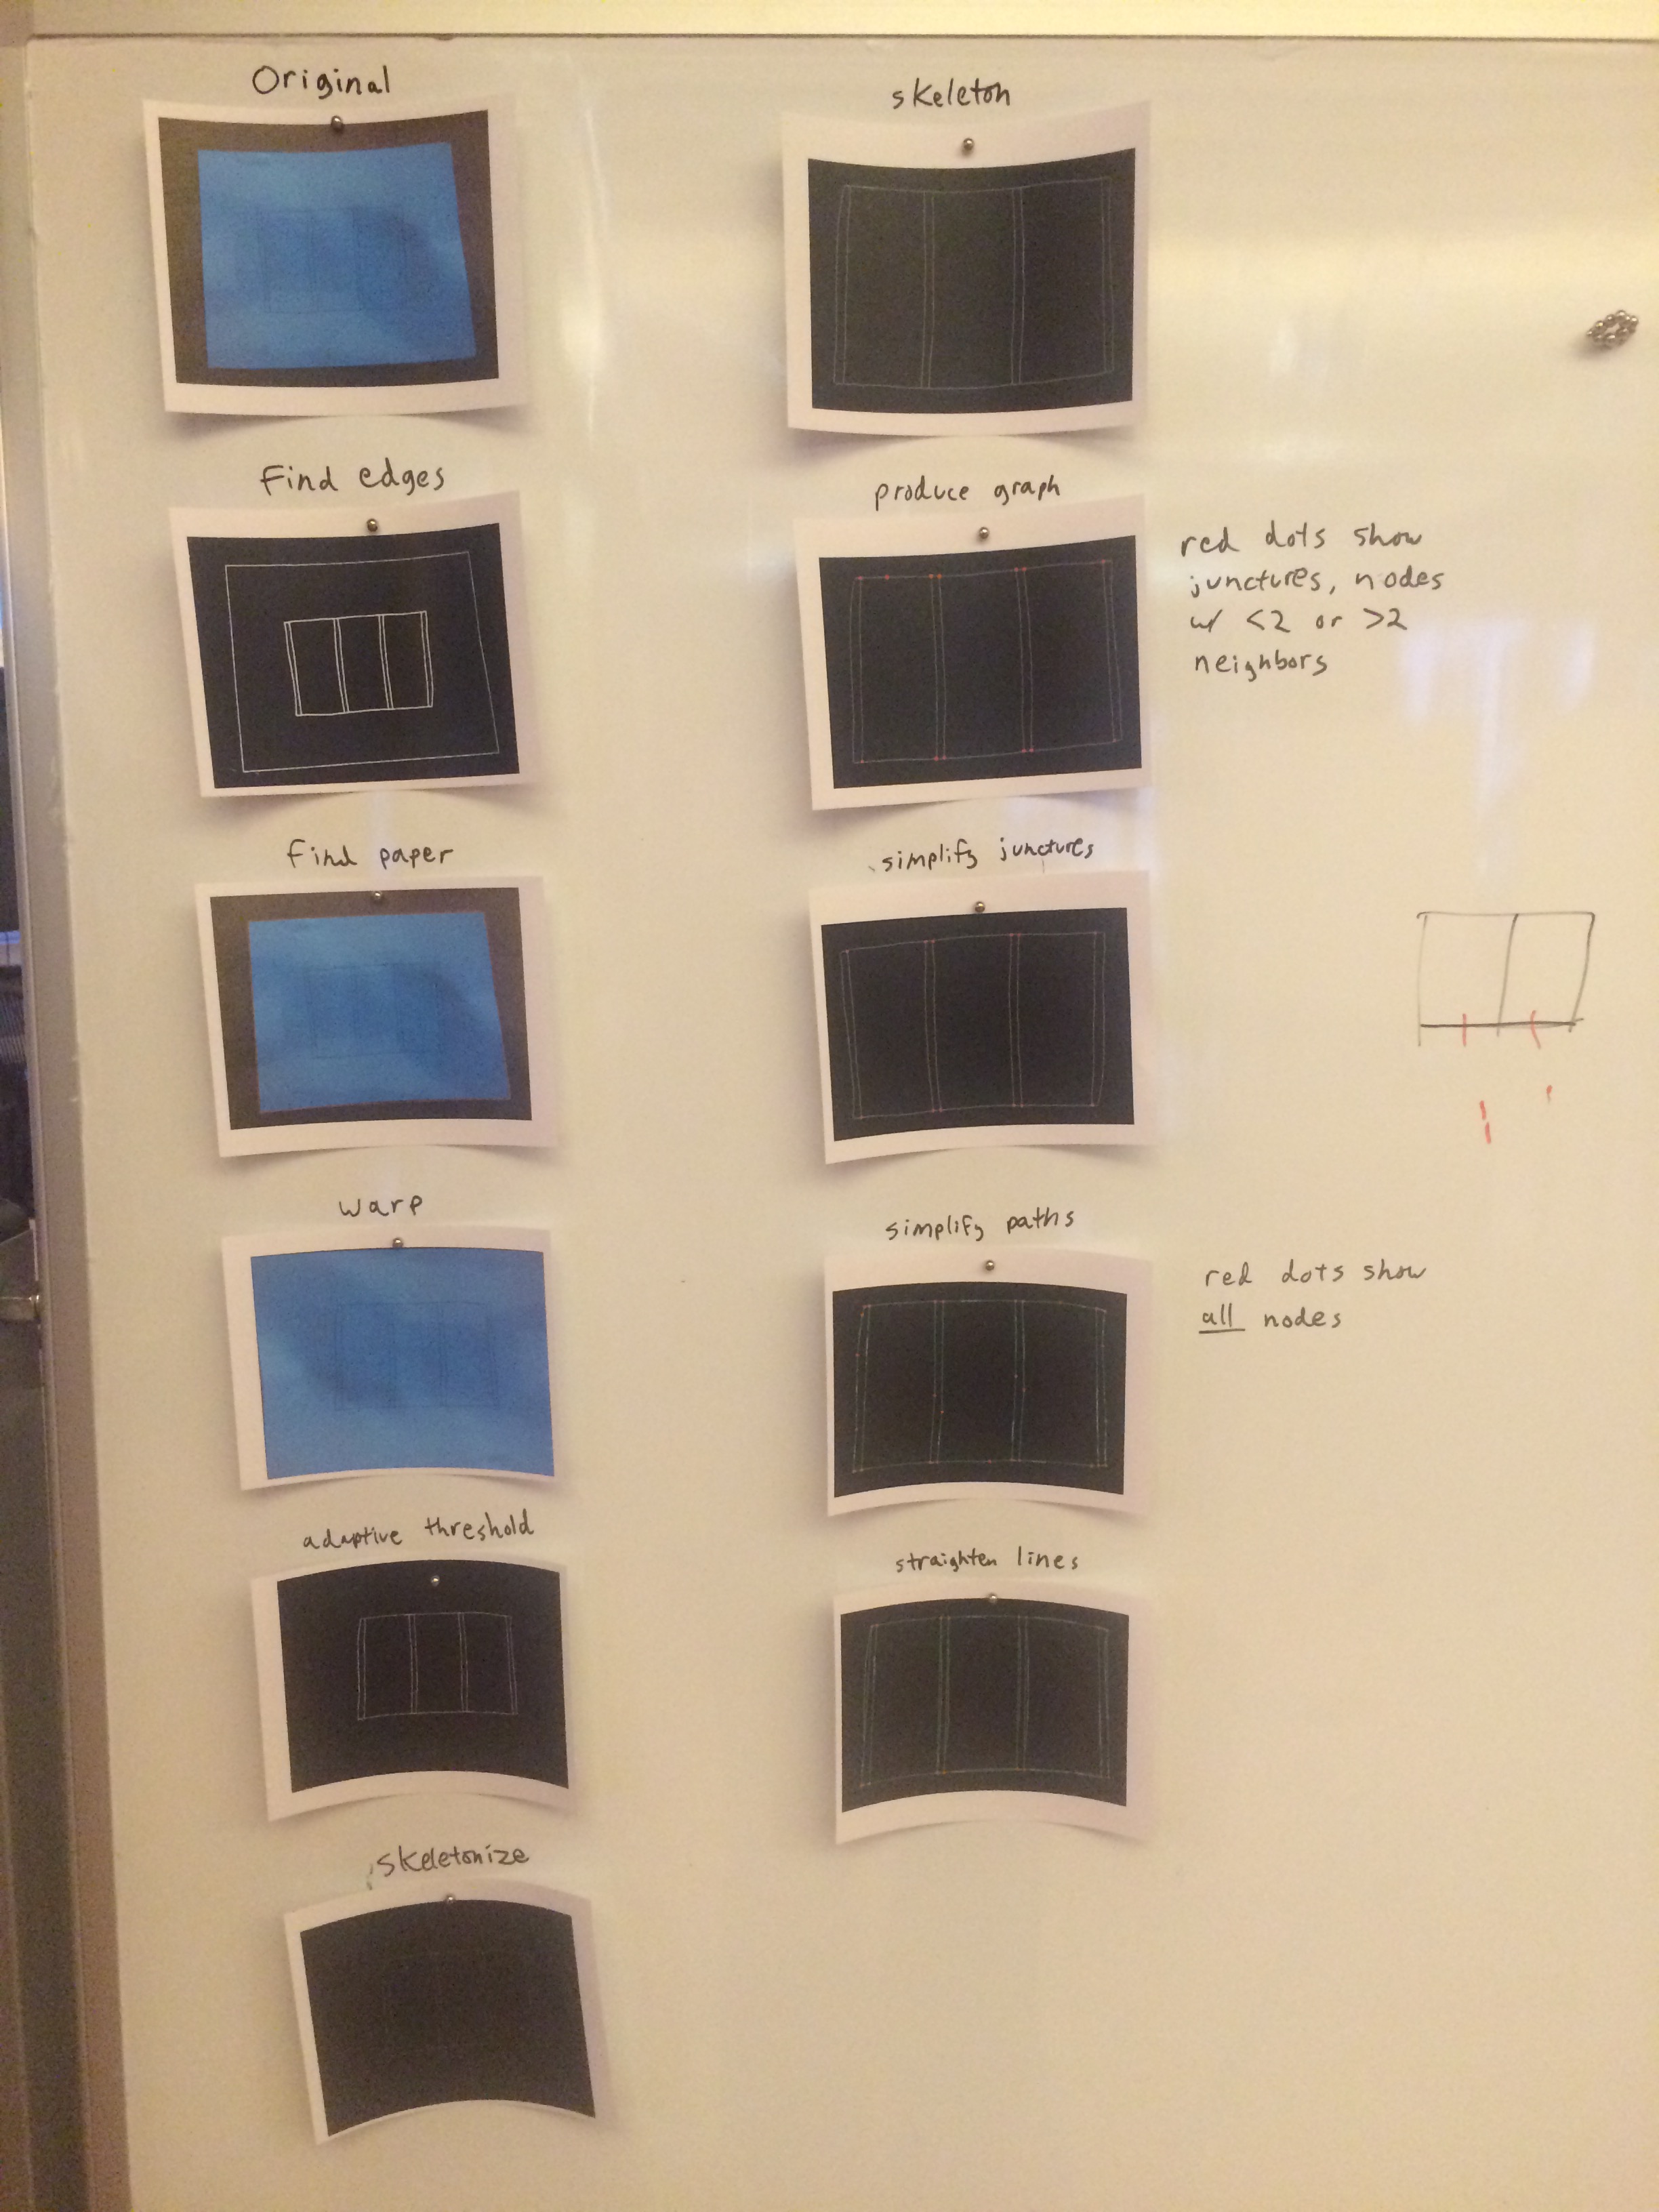 Original
Find edges
find paper
warp
adaptive threshold
skeletonize
skeleton
produce graph
red dots show
junctures, nodes
w/ <2 or >2
neighbors
simplify junctures
simplify paths
red dots show
all nodes
straighten lines